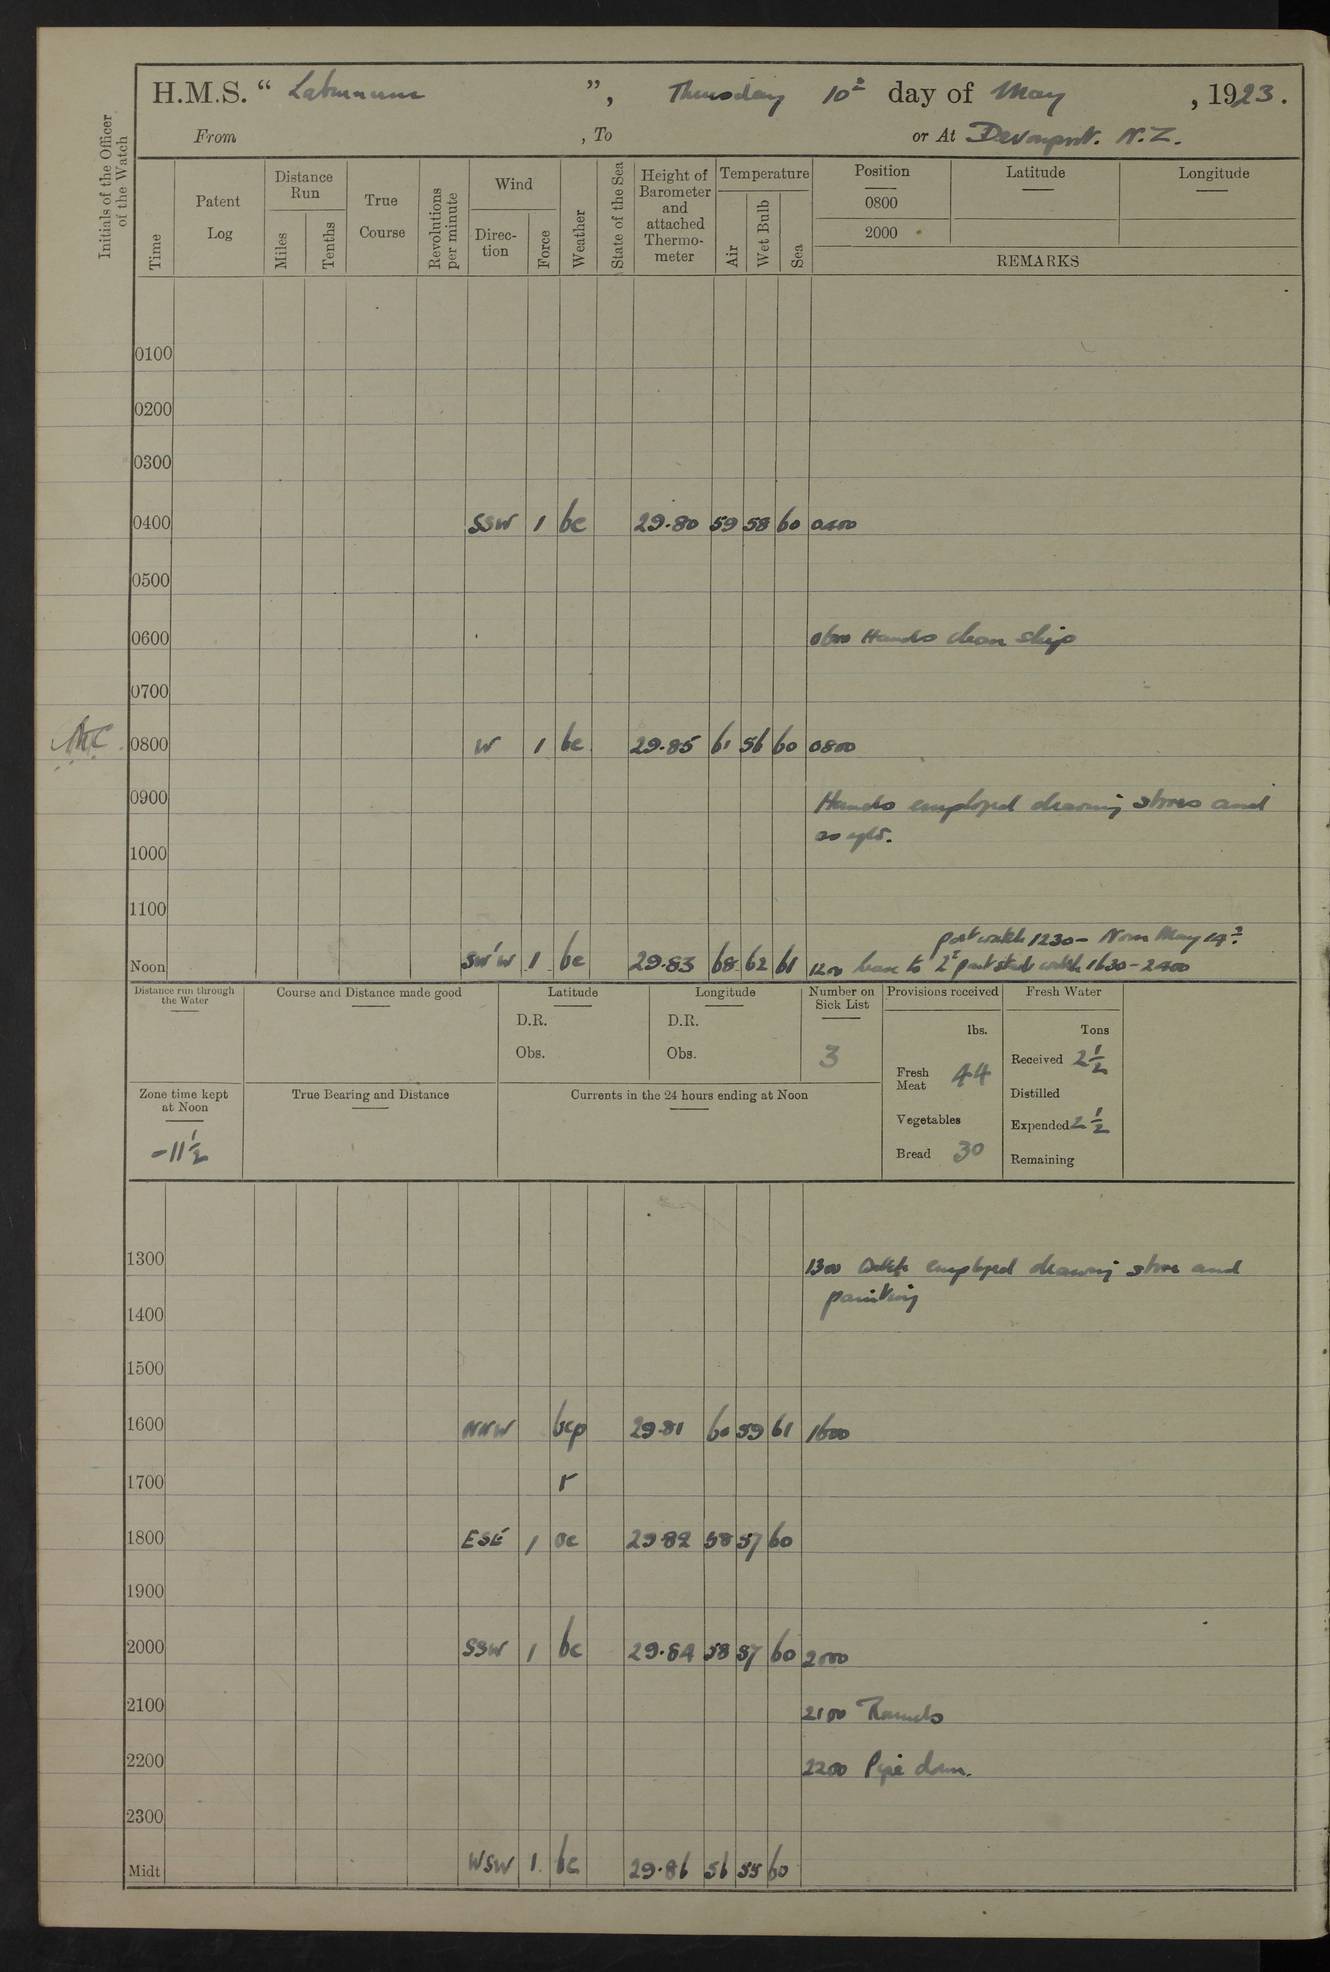 H.M.S. “ Laburnum ”, Thursday 10th day of May , 1923.
From , To or At Devonport. N.Z.
Initials of the Officer of the Watch
Time
Patent Log
Distance Run
Miles
Tenths
True Course
Revolutions per minute
Wind
Direc-tion
Force
Weather
State of the Sea
Height of Barometer and attached Thermo-meter
Temperature
Air
Wet Bulb
Sea
Position
0800
2000
Latitude
Longitude
REMARKS
0100
0200
0300
0400 SSW 1 bc 29.80 59 58 60 0400
0500
0600 0600 Hands clean ship
0700
0800 W 1 bc 29.85 61 56 60 0800
0900 Hands employed drawing stores and
as reqd.
1000
1100
part watch 1230 - Noon May 14th.
Noon SW'W 1 bc 29.83 68 62 61 1200 leave to 2nd part stbd watch 1630 - 2400
Distance run through the Water
Course and Distance made good
Latitude
D.R.
Obs.
Longitude
D.R.
Obs.
Number on Sick List
3
Provisions received
lbs.
Fresh Meat 44
Vegetables
Bread 30
Fresh Water
Tons
Received 2 1/2
Distilled
Expended 2 1/2
Remaining
Zone time kept at Noon
-11 1/2
True Bearing and Distance
Currents in the 24 hours ending at Noon
1300 1300 Watch employed drawing store and
painting
1400
1500
1600 NNW bcp 29.81 60 59 61 1600
1700 r
1800 ESE 1 oc 29.82 58 57 60
1900
2000 SSW 1 bc 29.84 58 57 60 2000
2100 2100 Rounds
2200 2200 Pipe down.
2300
Midt WSW 1. bc 29.86 56 55 60